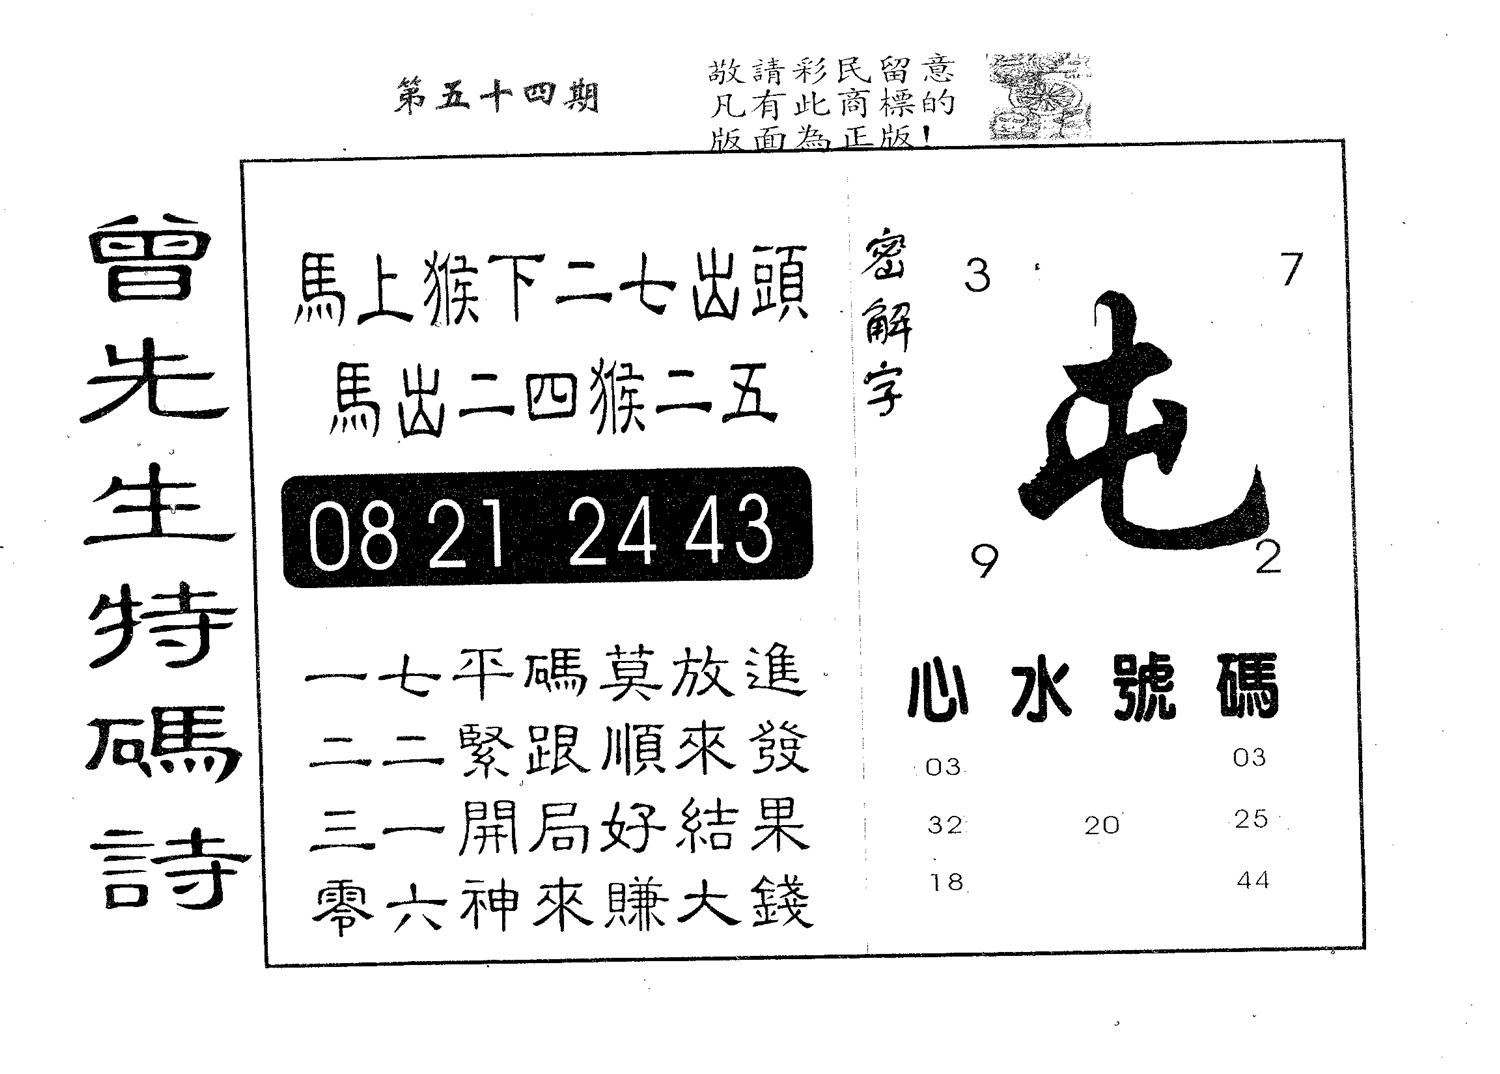 第五十四期
敬請彩民留意
凡有此商標的
版面為正版!
曾先生特碼詩
馬上猴下二七出頭
馬出二四猴二五
08 21 24 43
一七平碼莫放進
二二緊跟順來發
三一開局好結果
零六神來賺大錢
密解字
3 7
屯
9 2
心水號碼
03 03
32 20 25
18 44